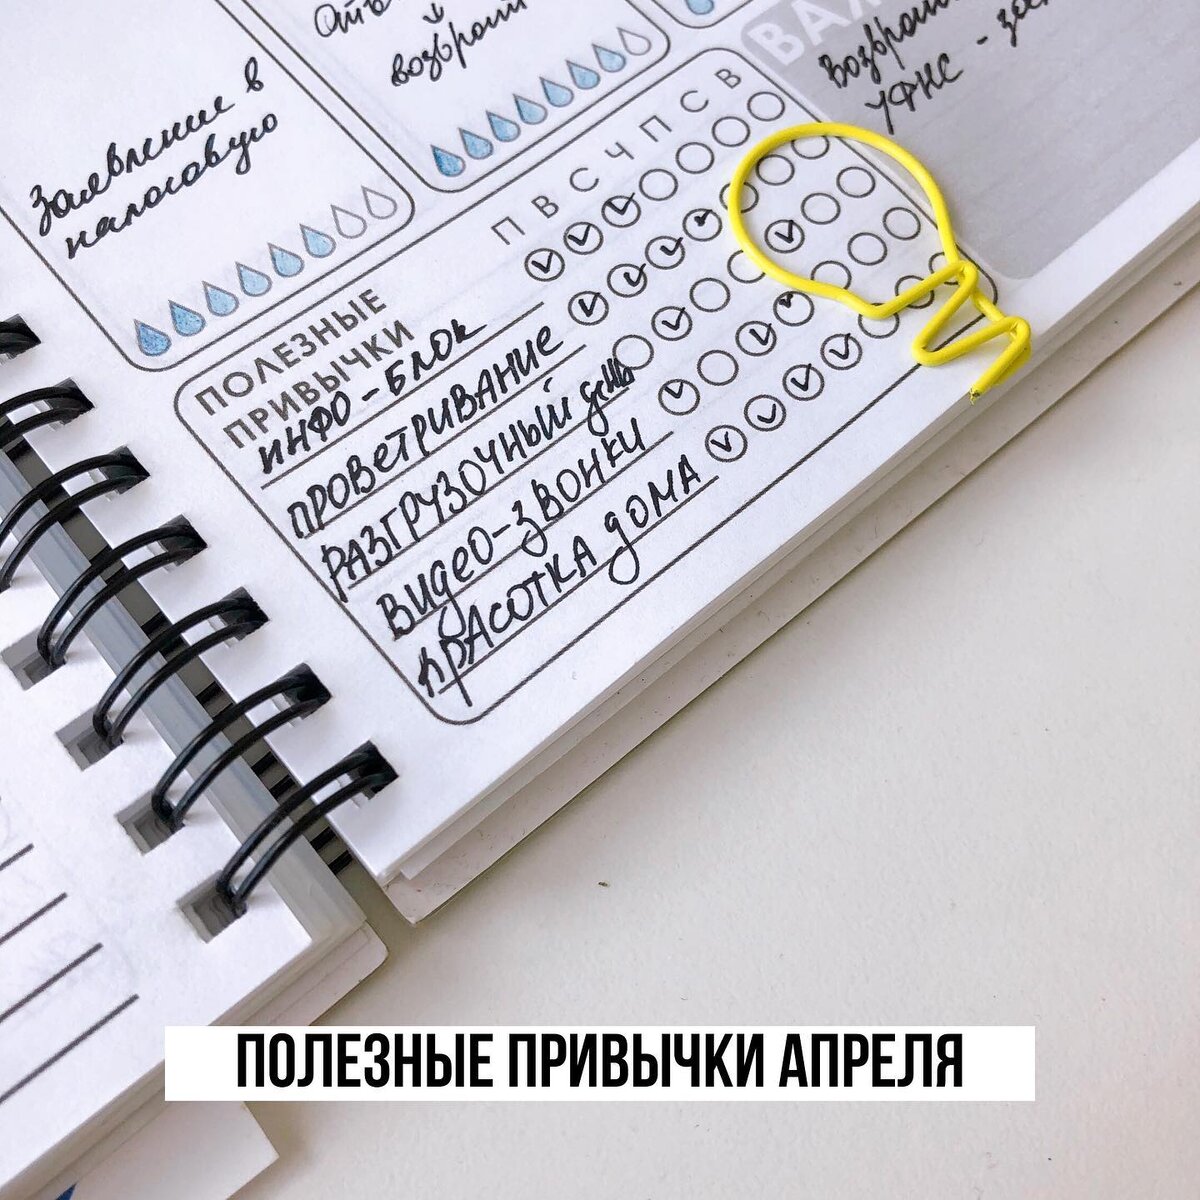 возврат
Заявление в
налоговую
ВАЖ
Возврат
УФНС -
П В С Ч П С В
ПОЛЕЗНЫЕ
ПРИВЫЧКИ
ИНФО-БЛОК
ПРОВЕТРИВАНИЕ
РАЗГРУЗОЧНЫЙ день
ВИДЕО-ЗВОНКИ
КРАСОТКА ДОМА
ПОЛЕЗНЫЕ ПРИВЫЧКИ АПРЕЛЯ